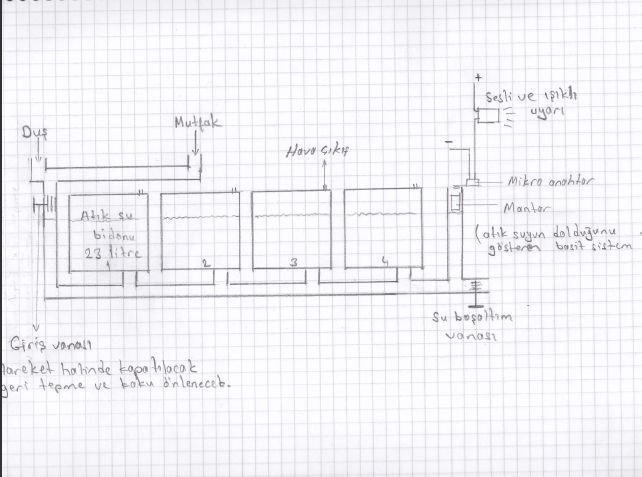 +
Sesli ve ışıklı
uyarı
Duş
Mutfak
Hava çıkış
-
Mikro anahtar
Mantar
(atık suyun dolduğunu
gösteren basit sistem
Atık su
bidonu
23 litre
1
2
3
4
Su boşaltım
vanası
Giriş vanası
Hareket halinde kapatılacak
geri tepme ve koku önlenecek.